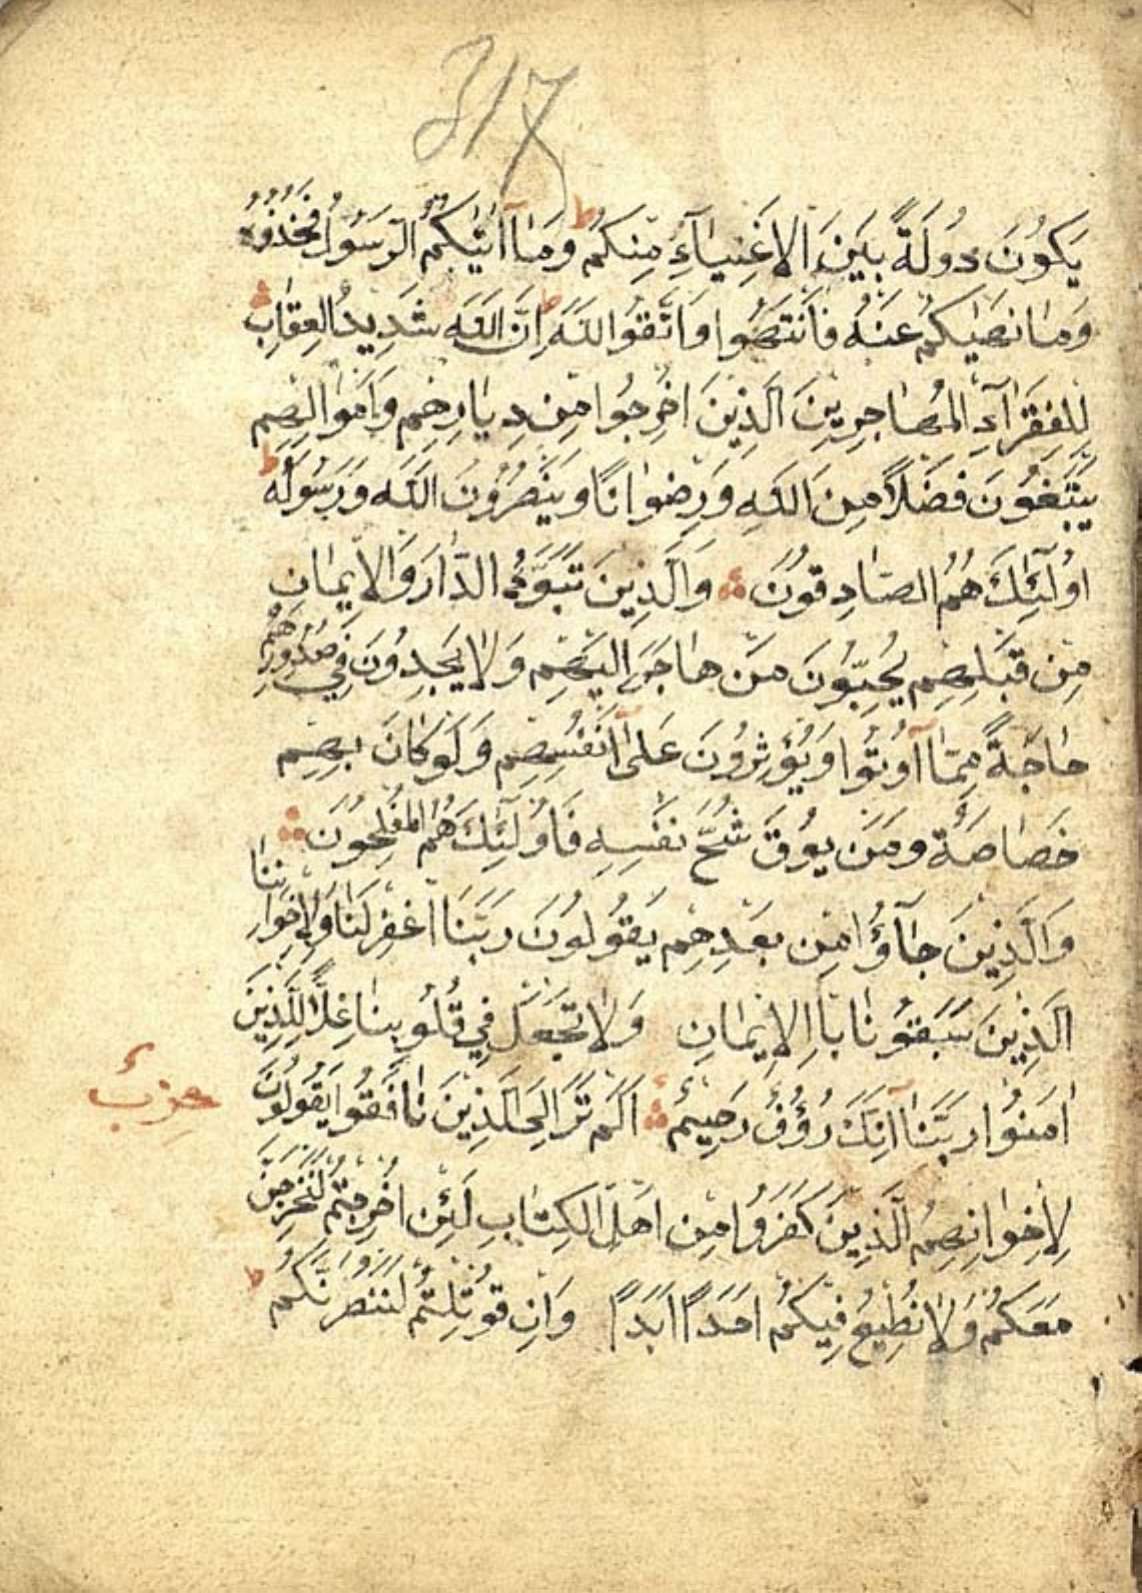 317
يَكُونَ دُولَةً بَيْنَ الْاَغْنِيَآءِ مِنْكُمْ ط وَمَآ اٰتٰيكُمُ الرَّسُولُ فَخُذُوهُ
وَمَا نَهٰيكُمْ عَنْهُ فَانْتَهُوا وَاتَّقُوا اللّٰهَ ط اِنَّ اللّٰهَ شَدِيدُ الْعِقَابِ
لِلْفُقَرَآءِ الْمُهَاجِرِينَ الَّذِينَ اُخْرِجُوا مِنْ دِيَارِهِمْ وَاَمْوَالِهِمْ
يَبْتَغُونَ فَضْلًا مِنَ اللّٰهِ وَرِضْوَانًا وَيَنْصُرُونَ اللّٰهَ وَرَسُولَهُ ط
اُولٰٓئِكَ هُمُ الصَّادِقُونَ وَالَّذِينَ تَبَوَّؤُ الدَّارَ وَالْاِيمَانَ
مِنْ قَبْلِهِمْ يُحِبُّونَ مَنْ هَاجَرَ اِلَيْهِمْ وَلَا يَجِدُونَ فِي صُدُورِهِمْ
حَاجَةً مِمَّآ اُوتُوا وَيُؤْثِرُونَ عَلٰٓى اَنْفُسِهِمْ وَلَوْ كَانَ بِهِمْ
خَصَاصَةٌ وَمَنْ يُوقَ شُحَّ نَفْسِهِ فَاُولٰٓئِكَ هُمُ الْمُفْلِحُونَ
وَالَّذِينَ جَآؤُا مِنْ بَعْدِهِمْ يَقُولُونَ رَبَّنَا اغْفِرْ لَنَا وَلِاِخْوَانِنَا
الَّذِينَ سَبَقُونَا بِاالْاِيمَانِ وَلَا تَجْعَلْ فِي قُلُوبِنَا غِلًّا لِلَّذِينَ
اٰمَنُوا رَبَّنَآ اِنَّكَ رَؤُفٌ رَحِيمٌ اَلَمْ تَرَ اِلَى الَّذِينَ نَافَقُوا يَقُولُونَ
حزب
لِاِخْوَانِهِمُ الَّذِينَ كَفَرُوا مِنْ اَهْلِ الْكِتَابِ لَئِنْ اُخْرِجْتُمْ لَنَخْرُجَنَّ
مَعَكُمْ وَلَا نُطِيعُ فِيكُمْ اَحَدًا اَبَدًا وَاِنْ قُوتِلْتُمْ لَنَنْصُرَنَّكُمْ ط